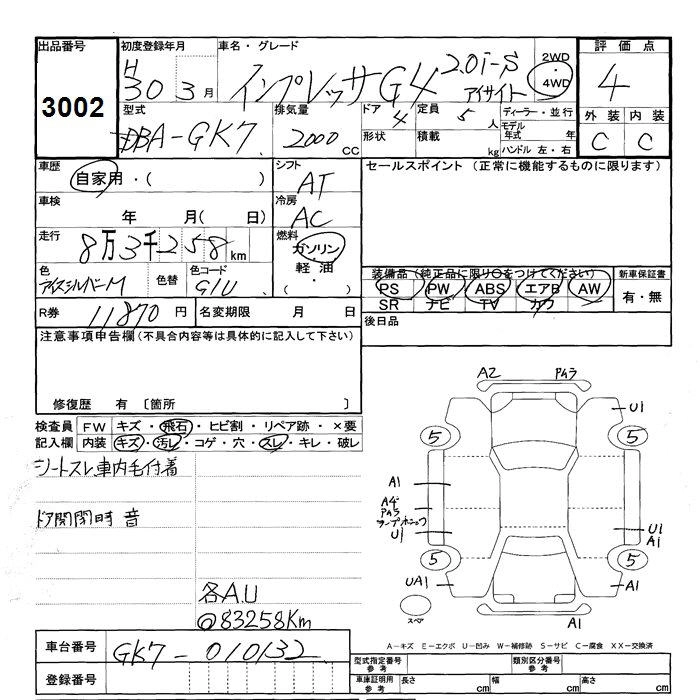 出品番号 初度登録年月 車名・グレード 評価点
3002 H 30 3月 インプレッサG4 2.0i-S アイサイト 2WD・4WD 4
型式 排気量 ドア 定員 ディーラー・並行 外装 内装
DBA-GK7 2000cc 4 5人 モデル年式 年 C C
形状 積載 kg ハンドル 左・右
車歴 シフト セールスポイント (正常に機能するものに限ります)
自家用・( ) AT
車検 冷房
年 月( 日) AC
走行 燃料
8万3千258km ガソリン
軽油
・( )
色 色替 色コード 装備品(純正品に限り○をつけてください) 新車保証書
アイスシルバーM G1U PS PW ABS エアB AW 有・無
SR ナビ TV カワ
R券 11870円 名変期限 月 日 後日品
注意事項申告欄(不具合内容等は具体的に記入して下さい)
修復歴 有 〔箇所 〕
検査員 FW キズ・飛石・ヒビ割・リペア跡・×要
記入欄 内装 キズ・汚レ・コゲ・穴・スレ・キレ・破レ
シートスレ車内毛付着
ドア開閉時音
各A.U
@83258Km
A2 PAラ
U1
5 5
A1
A4
PAラ
U1 U1
A1
5 5
UA1 A1
スペア A1
A-キズ E-エクボ U-凹み W-補修跡 S-サビ C-腐食 XX-交換済
車台番号 GK7-010132
登録番号
型式指定番号 参考 類別区分番号 参考
車庫証明用 参考 長さ cm 幅 cm 高さ cm